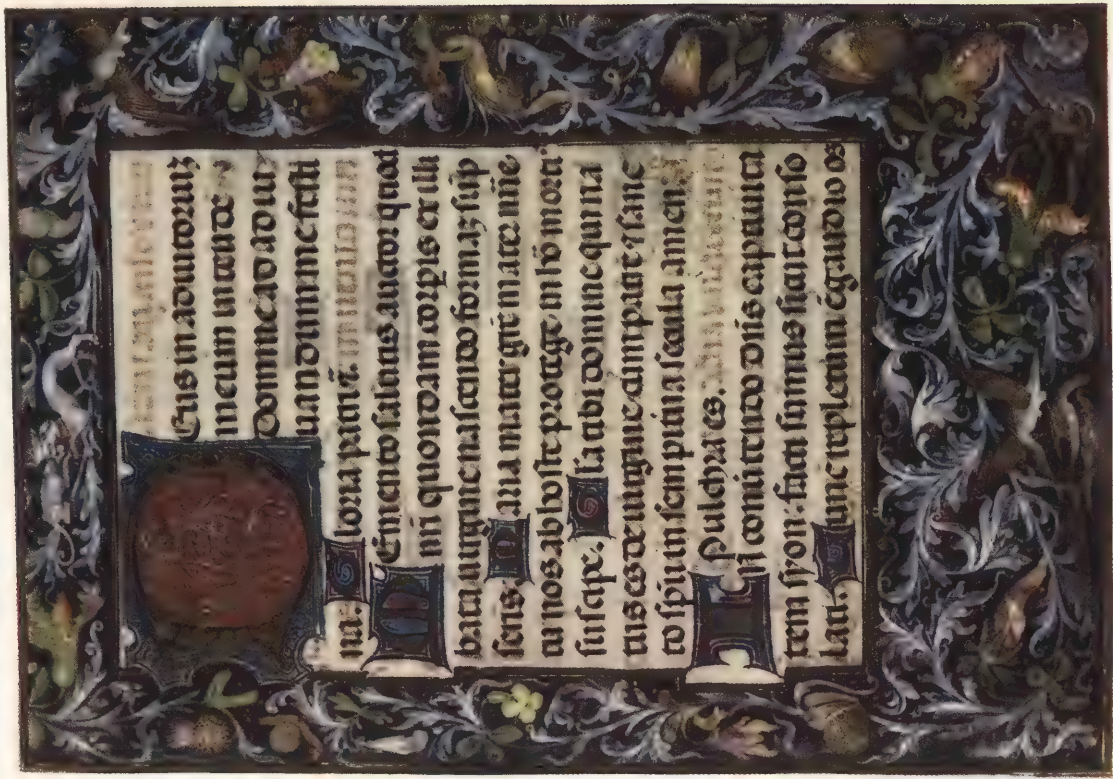 Eus in adiutoriuz
meum intende
Domine ad adiu
uandum me festi
na. Gloria patri.
Emento salutis auctor quod
nri quondam corpis ex illi
bata uirgine nascendo formaz sup
seris. Maria mater gre mater mie
tu nos ab hoste protege in ho mort
suscipe. Gla tibi domine qui na
tus es de uirgine cum patre et sanc
to spiu in sempitna secula amen.
Pulchra es.
In conuertendo dns captiuita
tem syon: facti sumus sicut conso
lati. Tunc repletum e gaudio os